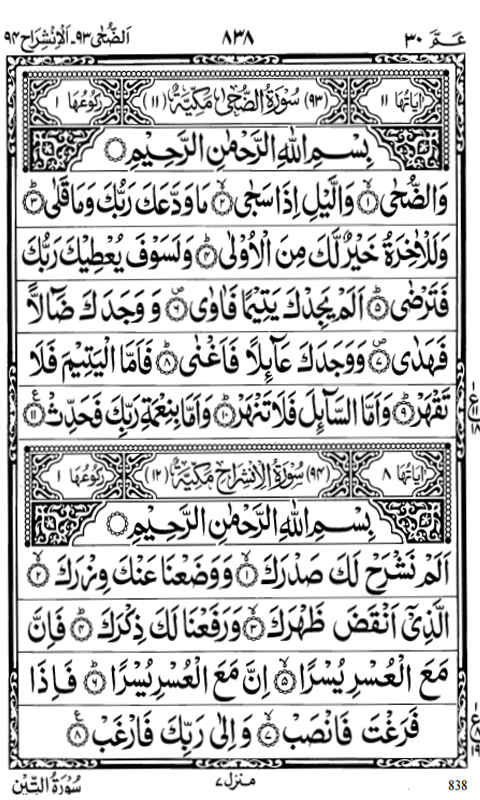 عَمَّ ٣٠ ٨٣٨ اَلضُّحٰى ٩٣۔اَلْاِنْشِرَاح ٩٤
اٰيَاتُهَا ١١ (٩٣) سُوْرَةُ الضُّحٰى مَكِّيَّةٌ (١١) رُكُوْعُهَا ١
بِسْمِ اللهِ الرَّحْمٰنِ الرَّحِيْمِ
وَالضُّحٰى ١ وَالَّيْلِ اِذَا سَجٰى ٢ مَا وَدَّعَكَ رَبُّكَ وَمَا قَلٰى ٣
وَلَلْاٰخِرَةُ خَيْرٌ لَّكَ مِنَ الْاُوْلٰى ٤ وَلَسَوْفَ يُعْطِيْكَ رَبُّكَ
فَتَرْضٰى ٥ اَلَمْ يَجِدْكَ يَتِيْمًا فَاٰوٰى ٦ وَوَجَدَكَ ضَآلًّا
فَهَدٰى ٧ وَوَجَدَكَ عَآئِلًا فَاَغْنٰى ٨ فَاَمَّا الْيَتِيْمَ فَلَا
تَقْهَرْ ٩ وَاَمَّا السَّآئِلَ فَلَا تَنْهَرْ ١٠ وَاَمَّا بِنِعْمَةِ رَبِّكَ فَحَدِّثْ ١١
ع ١١ ١٨
اٰيَاتُهَا ٨ (٩٤) سُوْرَةُ الْاِنْشِرَاحِ مَكِّيَّةٌ (١٢) رُكُوْعُهَا ١
بِسْمِ اللهِ الرَّحْمٰنِ الرَّحِيْمِ
اَلَمْ نَشْرَحْ لَكَ صَدْرَكَ ١ وَوَضَعْنَا عَنْكَ وِزْرَكَ ٢
الَّذِيْٓ اَنْقَضَ ظَهْرَكَ ٣ وَرَفَعْنَا لَكَ ذِكْرَكَ ٤ فَاِنَّ
مَعَ الْعُسْرِ يُسْرًا ٥ اِنَّ مَعَ الْعُسْرِ يُسْرًا ٦ فَاِذَا
فَرَغْتَ فَانْصَبْ ٧ وَاِلٰى رَبِّكَ فَارْغَبْ ٨
ع ٨ ١٩
838 منزل ٧ سُوْرَةُ التِّيْنِ